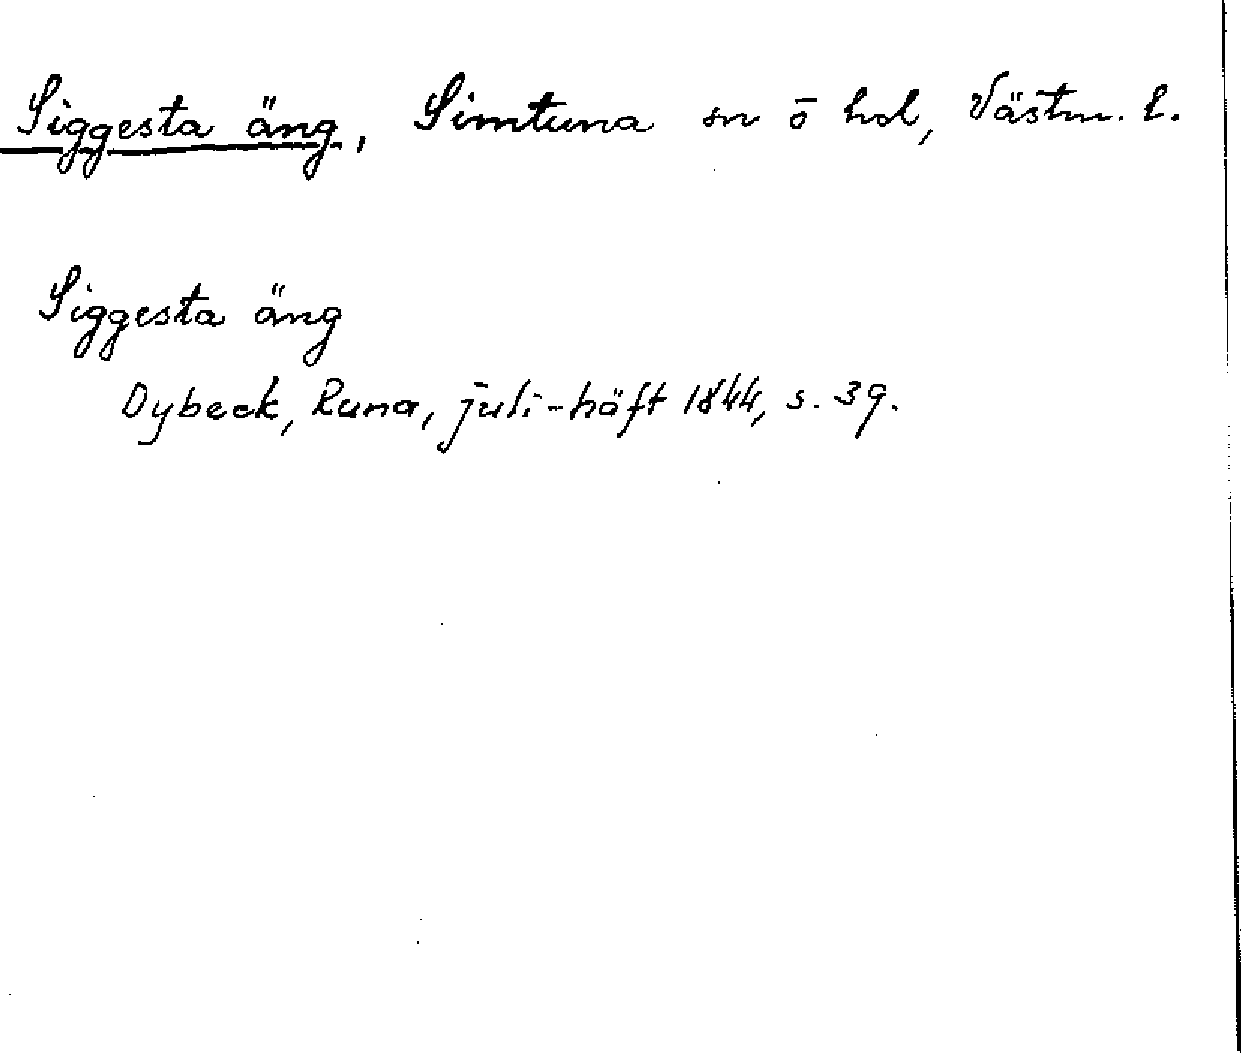 Siggesta äng, Simtuna sn o hd, Västm. l.
Siggesta äng
Dybeck, Runa, juli-häft 1844, s. 39.